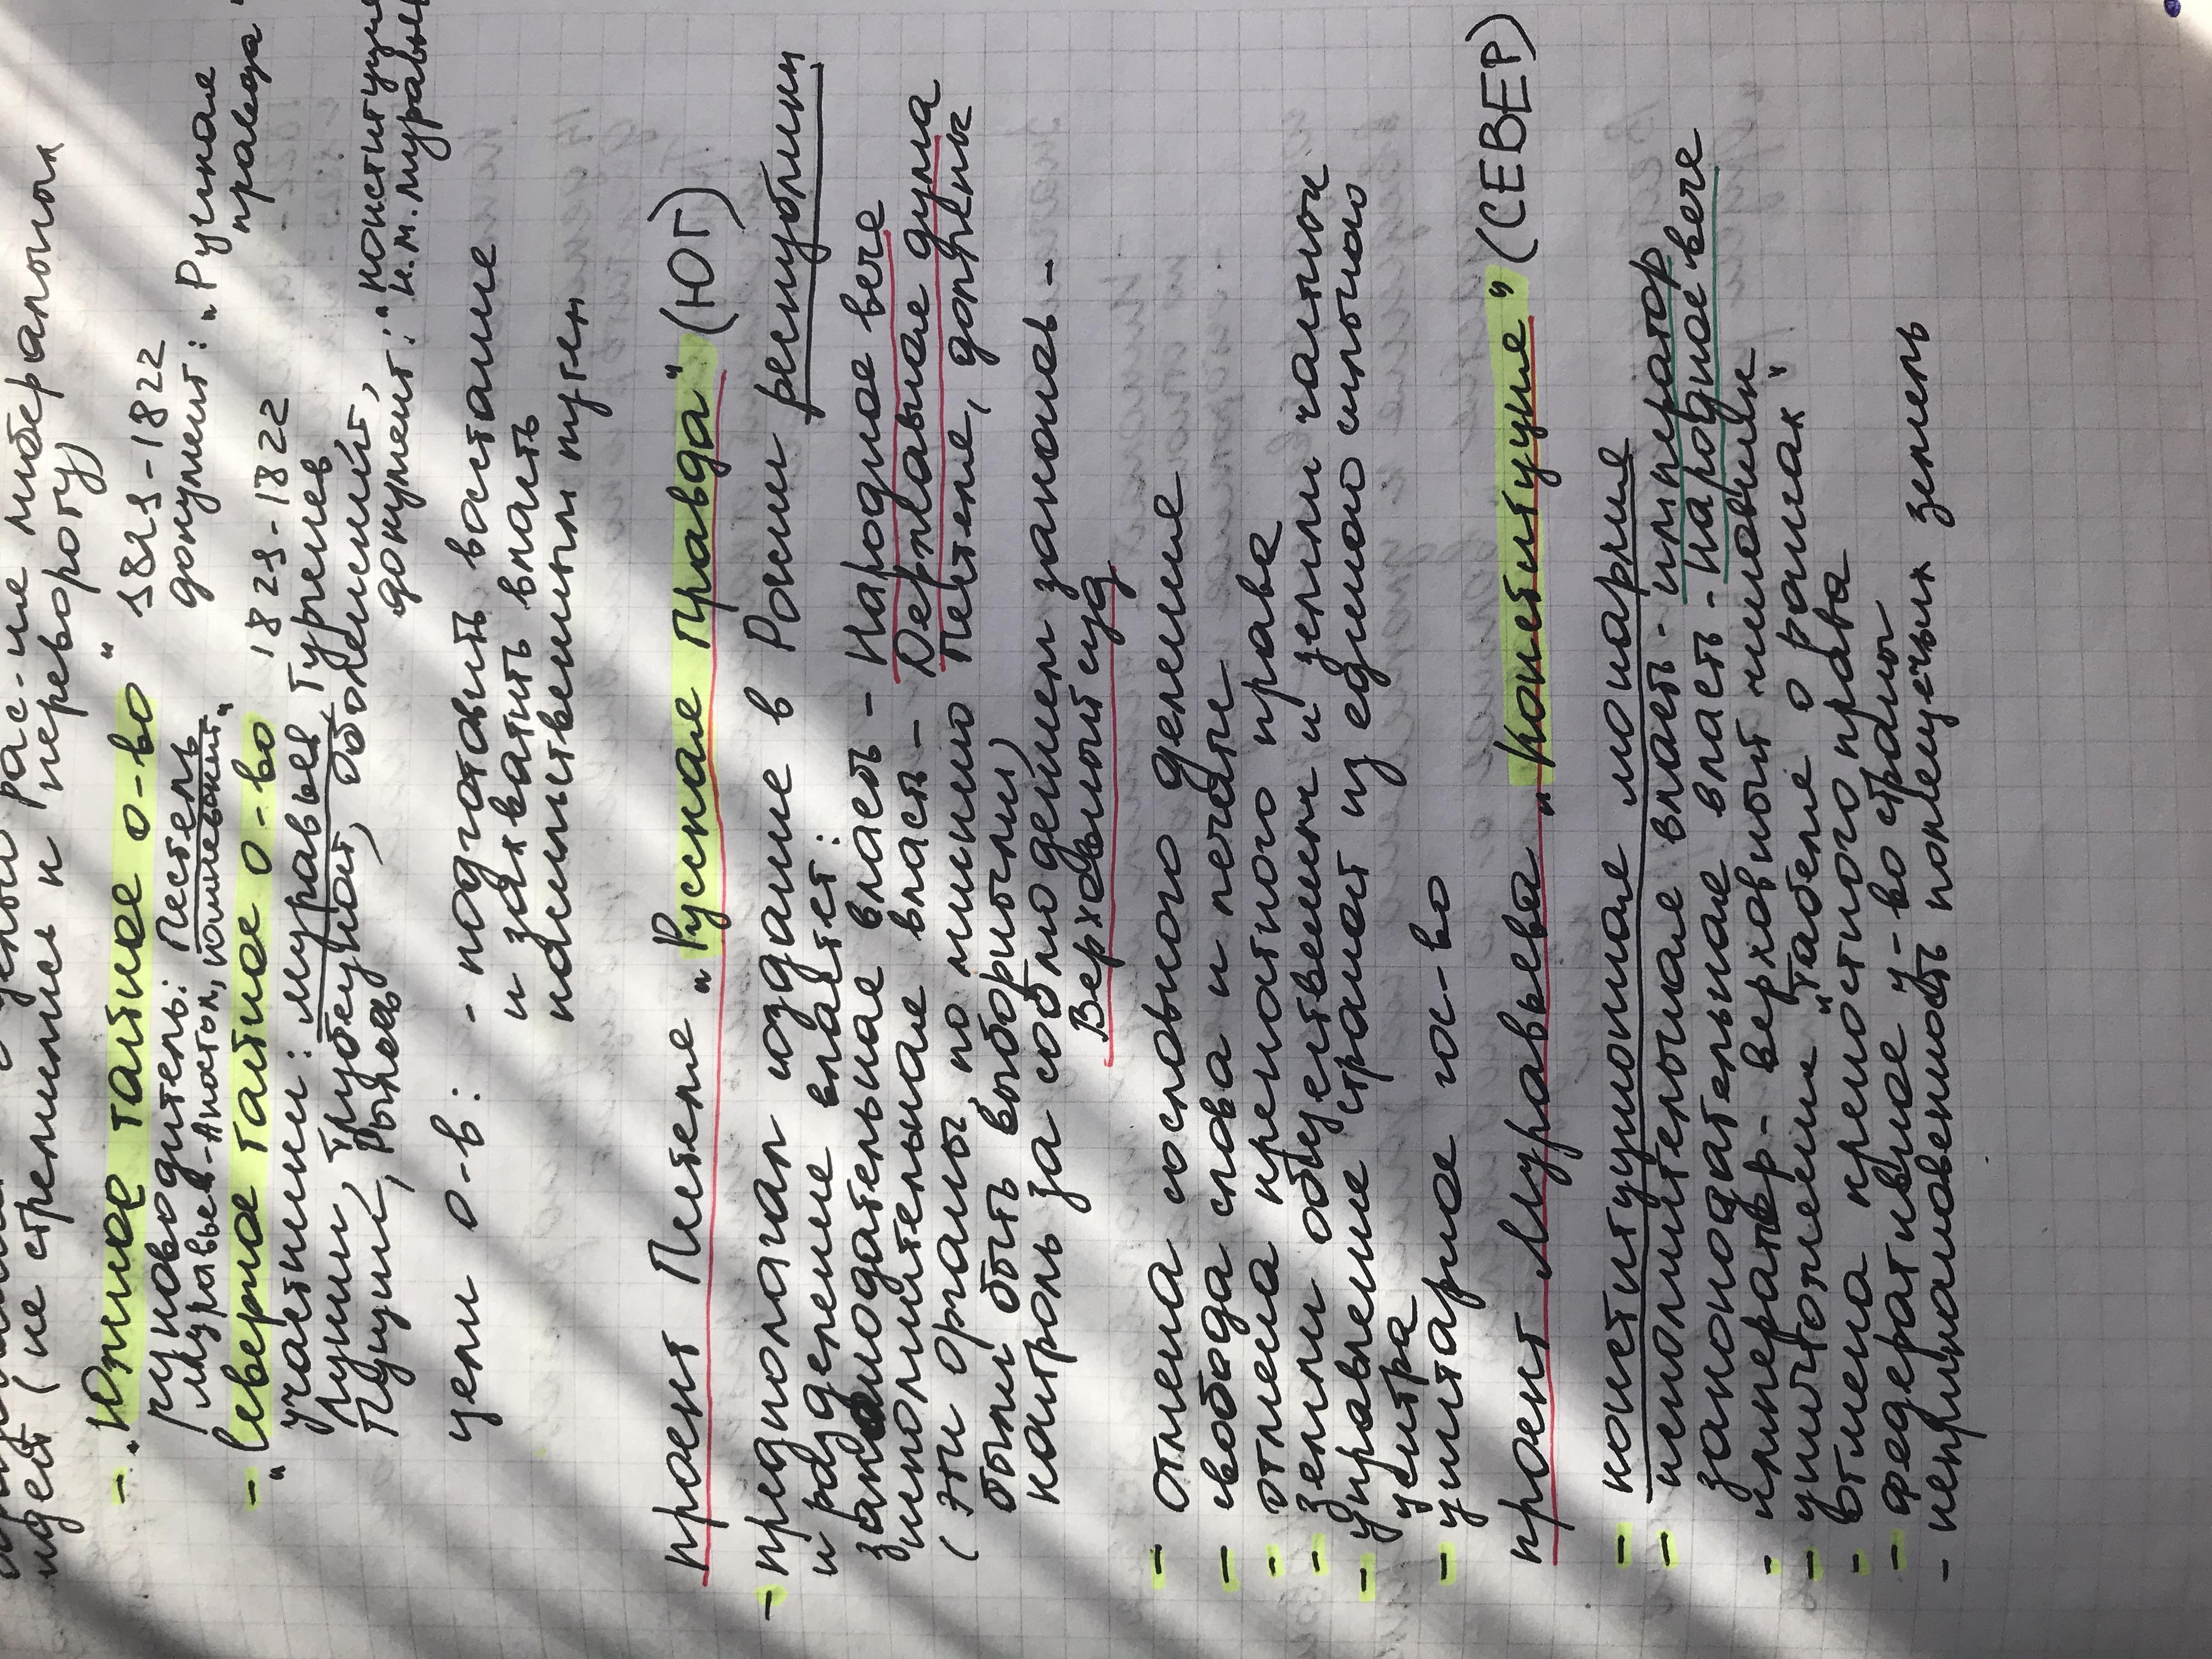 идей (не стремились к перевороту)
- „Южное тайное о-во" 1821-1822
руководитель: Пестель документ: „Русская правда"
Муравьев-Апостол, Юшневский
- „Северное тайное о-во" 1821-1822
участники: Муравьев, Тургенев
Лунин, Трубецкой, Оболенский,
Пущин, Рылеев документ: „конституция"
Н.М.Муравьев
цели о-в: - подготовить востание
и захватить власть
насильственным путем
проект Пестеля „Русская правда" (ЮГ)
- предполагал создание в России республики
и разделение властей:
законодательная власть - Народное вече
исполнительная власть - Державная дума
(эти органы, по мнению Пестеля, должны
были быть выборными)
контроль за соблюдением законов -
Верховный суд
- отмена сословного деления
- свобода слова и печати
- отмена крепостного права
- земли общественные и земли частные
- управление страной из единого сильного
центра
- унитарное гос-во
проект Муравьева „Конституция" (СЕВЕР)
- конституционная монархия
- исполнительная власть - император
законодательная власть - народное вече
- император - верховный чиновник
- уничтожение „Табели о рангах"
- отмена крепостного права
- федеративное у-во страны
- неприкосновенность помещечьих земель